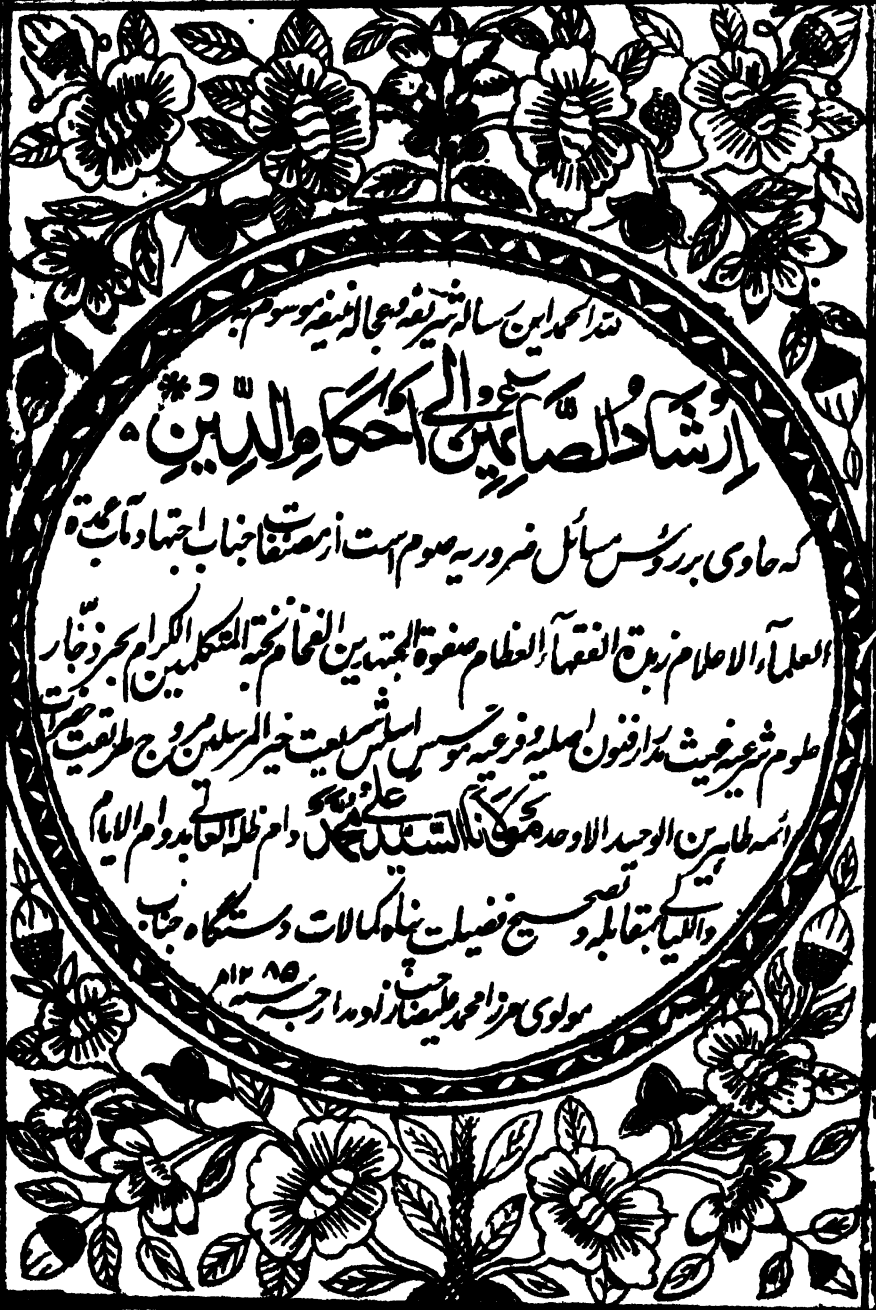 للہ الحمد این رسالہ شریفہ و عجالہ نفیفہ موسوم بہ
اِرْشَادُ الصَّائِمِیْنَ اِلٰی اَحْکَامِ الدِّیْنِ
کہ حاوی بر رؤس مسائل ضروریہ صوم است از مصنفات جناب اجتہاد مآب عمدۃ
العلمآء الاعلام زبدۃ الفقہآء العظام صفوۃ المجتہدین الفخام نخبۃ المتکلمین الکرام بحر ذخّار
علوم شرعیہ غیث مدرار فنون اصلیہ و فرعیہ مؤسس اساس شریعت خیر المرسلین مروج طریقت حضرات
ائمہ طاہرین الوحید الاوحد مولانا السید علی محمد دام ظلہ العالی بدوام الایام
واللیالی بمقابلہ و تصحیح فضیلت پناہ کمالات دستگاہ جناب
مولوی مرزا محمد علیصاحب سنہ ۱۲۸۵